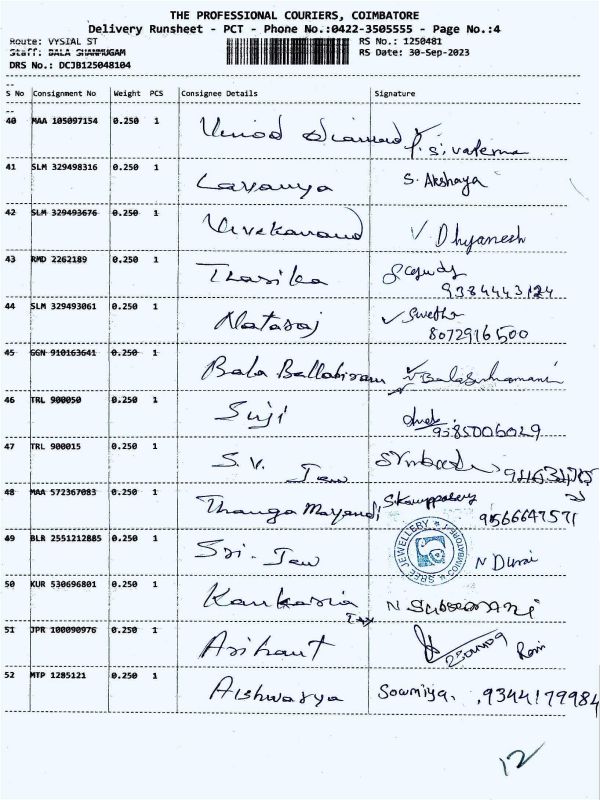 THE PROFESSIONAL COURIERS, COIMBATORE
Delivery Runsheet - PCT - Phone No.:0422-3505555 - Page No.:4
Route: VYSIAL ST RS No.: 1250481
Staff: BALA SHANMUGAM RS Date: 30-Sep-2023
DRS No.: DCJB125048104
S No Consignment No Weight PCS Consignee Details Signature
40 MAA 105097154 0.250 1 Vinod Diamond
41 SLM 329498316 0.250 1 Lavanya S. Akshaya
42 SLM 329493676 0.250 1 Vivekanand V Dhyanesh
43 RMD 2262189 0.250 1 Tharika
9384443124
44 SLM 329493061 0.250 1 Nataraj Swetha
8072916500
45 GGN 910163641 0.250 1 Bala Ballabiram Balasubramani
46 TRL 900050 0.250 1 Suji
9585006029
47 TRL 900015 0.250 1 S.V. Jew
48 MAA 572367083 0.250 1 Thanga Mayandi
9566647571
49 BLR 2551212885 0.250 1 Sri. Jew SREE JEWELLERY COIMBATORE-1 N Durai
50 KUR 530696801 0.250 1 Kankaria N Subramani
Jew
51 JPR 100090976 0.250 1 Arihant Ravi
52 MTP 1285121 0.250 1 Aishwarya Sowmiya. 9344179984
12